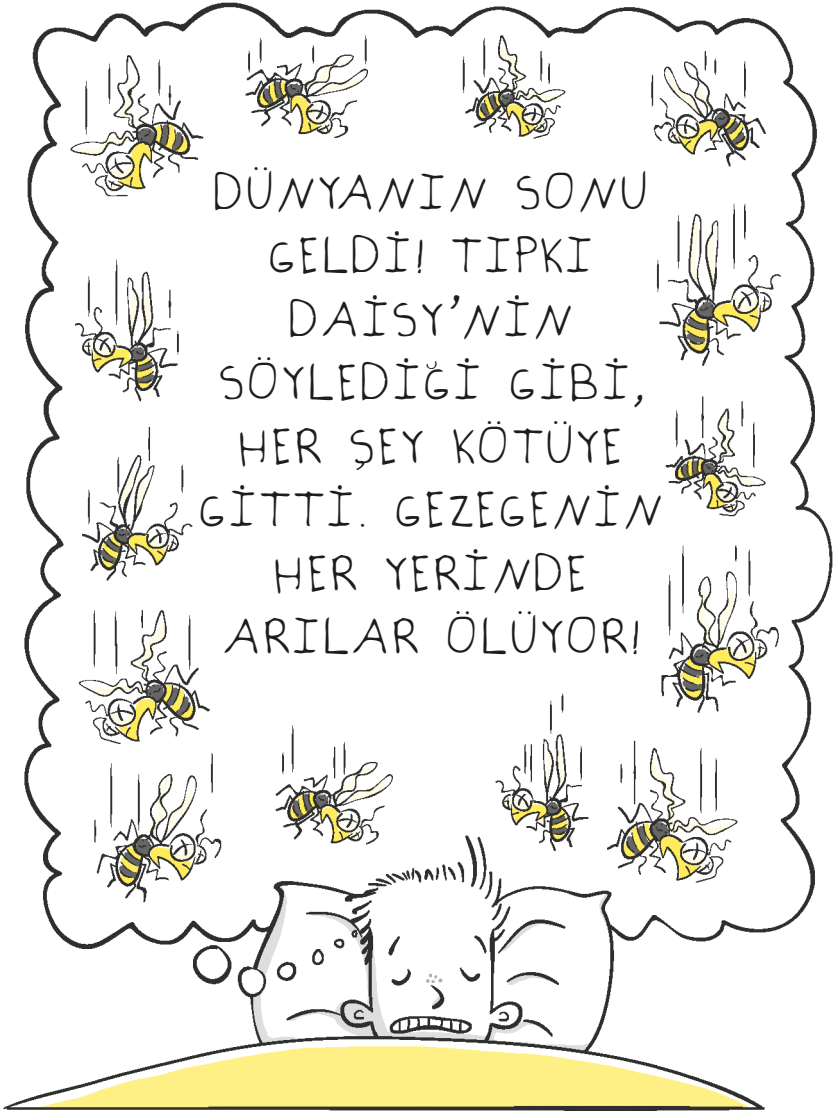 DÜNYANIN SONU
GELDİ! TIPKI
DAİSY'NİN
SÖYLEDİĞİ GİBİ,
HER ŞEY KÖTÜYE
GİTTİ. GEZEGENİN
HER YERİNDE
ARILAR ÖLÜYOR!